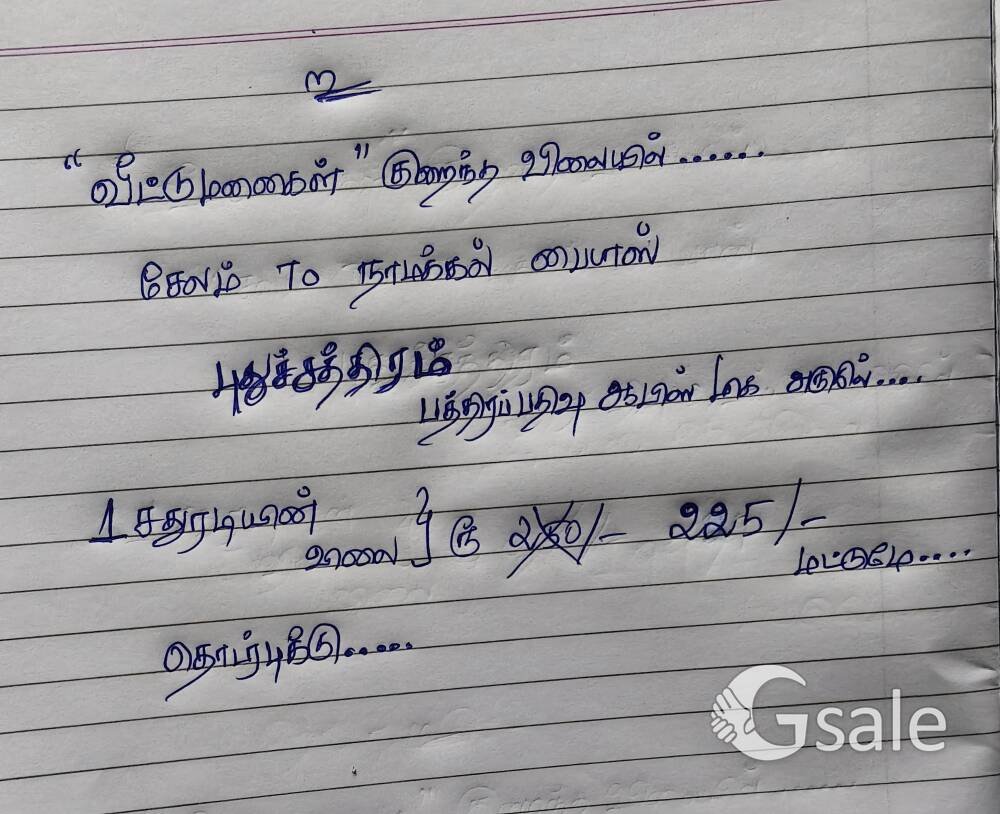 உ
"வீட்டுமனைகள்" குறைந்த விலையில்......
சேலம் To நாமக்கல் பைபாஸ்
புதுச்சத்திரம்
பத்திரப்பதிவு ஆபிஸ் மிக அருகில்....
1 சதுரடியின்
விலை } ரூ 250/- 225/-
மட்டுமே....
தொடர்புக்கு.....
Gsale